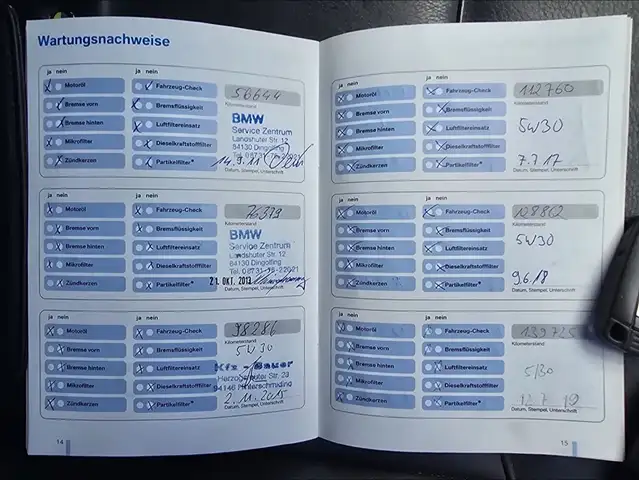 Wartungsnachweise
ja nein
ja nein
Motoröl
Fahrzeug-Check
56644
Bremse vorn
Bremsflüssigkeit
Kilometerstand
Bremse hinten
Luftfiltereinsatz
Mikrofilter
Dieselkraftstofffilter
Zündkerzen
Partikelfilter*
BMW
Service Zentrum
Landshuter Str. 12
84130 Dingolfing
Datum, Stempel, Unterschrift
ja nein
ja nein
Motoröl
Fahrzeug-Check
Bremse vorn
Bremsflüssigkeit
Kilometerstand
Bremse hinten
Luftfiltereinsatz
Mikrofilter
Dieselkraftstofffilter
Zündkerzen
Partikelfilter*
BMW
Service Zentrum
Landshuter Str. 12
84130 Dingolfing
21. OKT. 2013
Datum, Stempel, Unterschrift
ja nein
ja nein
Motoröl
Fahrzeug-Check
98286
Bremse vorn
Bremsflüssigkeit
Kilometerstand
Bremse hinten
Luftfiltereinsatz
Mikrofilter
Dieselkraftstofffilter
Zündkerzen
Partikelfilter*
5W30
Kfz-Bauer
2.11.2015
Datum, Stempel, Unterschrift
14
ja nein
ja nein
Motoröl
Fahrzeug-Check
112760
Bremse vorn
Bremsflüssigkeit
Kilometerstand
Bremse hinten
Luftfiltereinsatz
5W30
Mikrofilter
Dieselkraftstofffilter
Zündkerzen
Partikelfilter*
7.7.17
Datum, Stempel, Unterschrift
ja nein
ja nein
Motoröl
Fahrzeug-Check
Bremse vorn
Bremsflüssigkeit
Kilometerstand
Bremse hinten
Luftfiltereinsatz
5W30
Mikrofilter
Dieselkraftstofffilter
Zündkerzen
Partikelfilter*
9.6.18
Datum, Stempel, Unterschrift
ja nein
ja nein
Motoröl
Fahrzeug-Check
139725
Bremse vorn
Bremsflüssigkeit
Kilometerstand
Bremse hinten
Luftfiltereinsatz
5/30
Mikrofilter
Dieselkraftstofffilter
Zündkerzen
Partikelfilter*
Datum, Stempel, Unterschrift
15